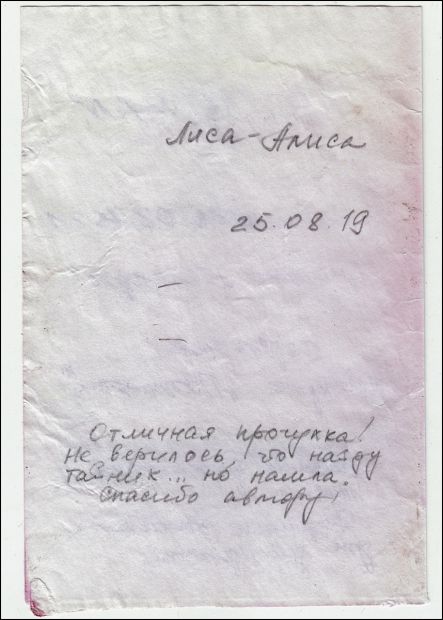 Лиса-Алиса
25.08.19
Отличная прогулка!
Не верилось, что найду
тайник... но нашла.
Спасибо автору!